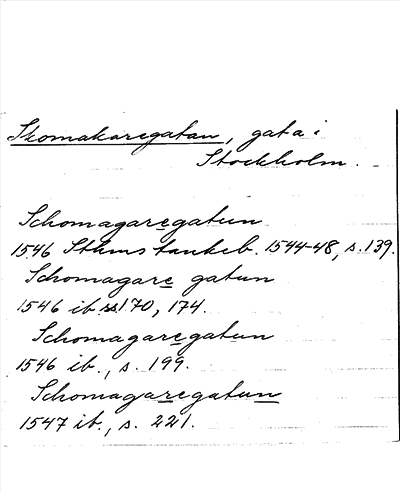 Skomakaregatan, gata i
Stockholm.
Schomagaregatun
1546 Sthms tankeb. 1544-48, s. 139.
Schomagare gatun
1546 ib. ss. 170, 174.
Schomagaregatun
1546 ib., s. 199.
Schomagaregatun
1547 ib., s. 221.